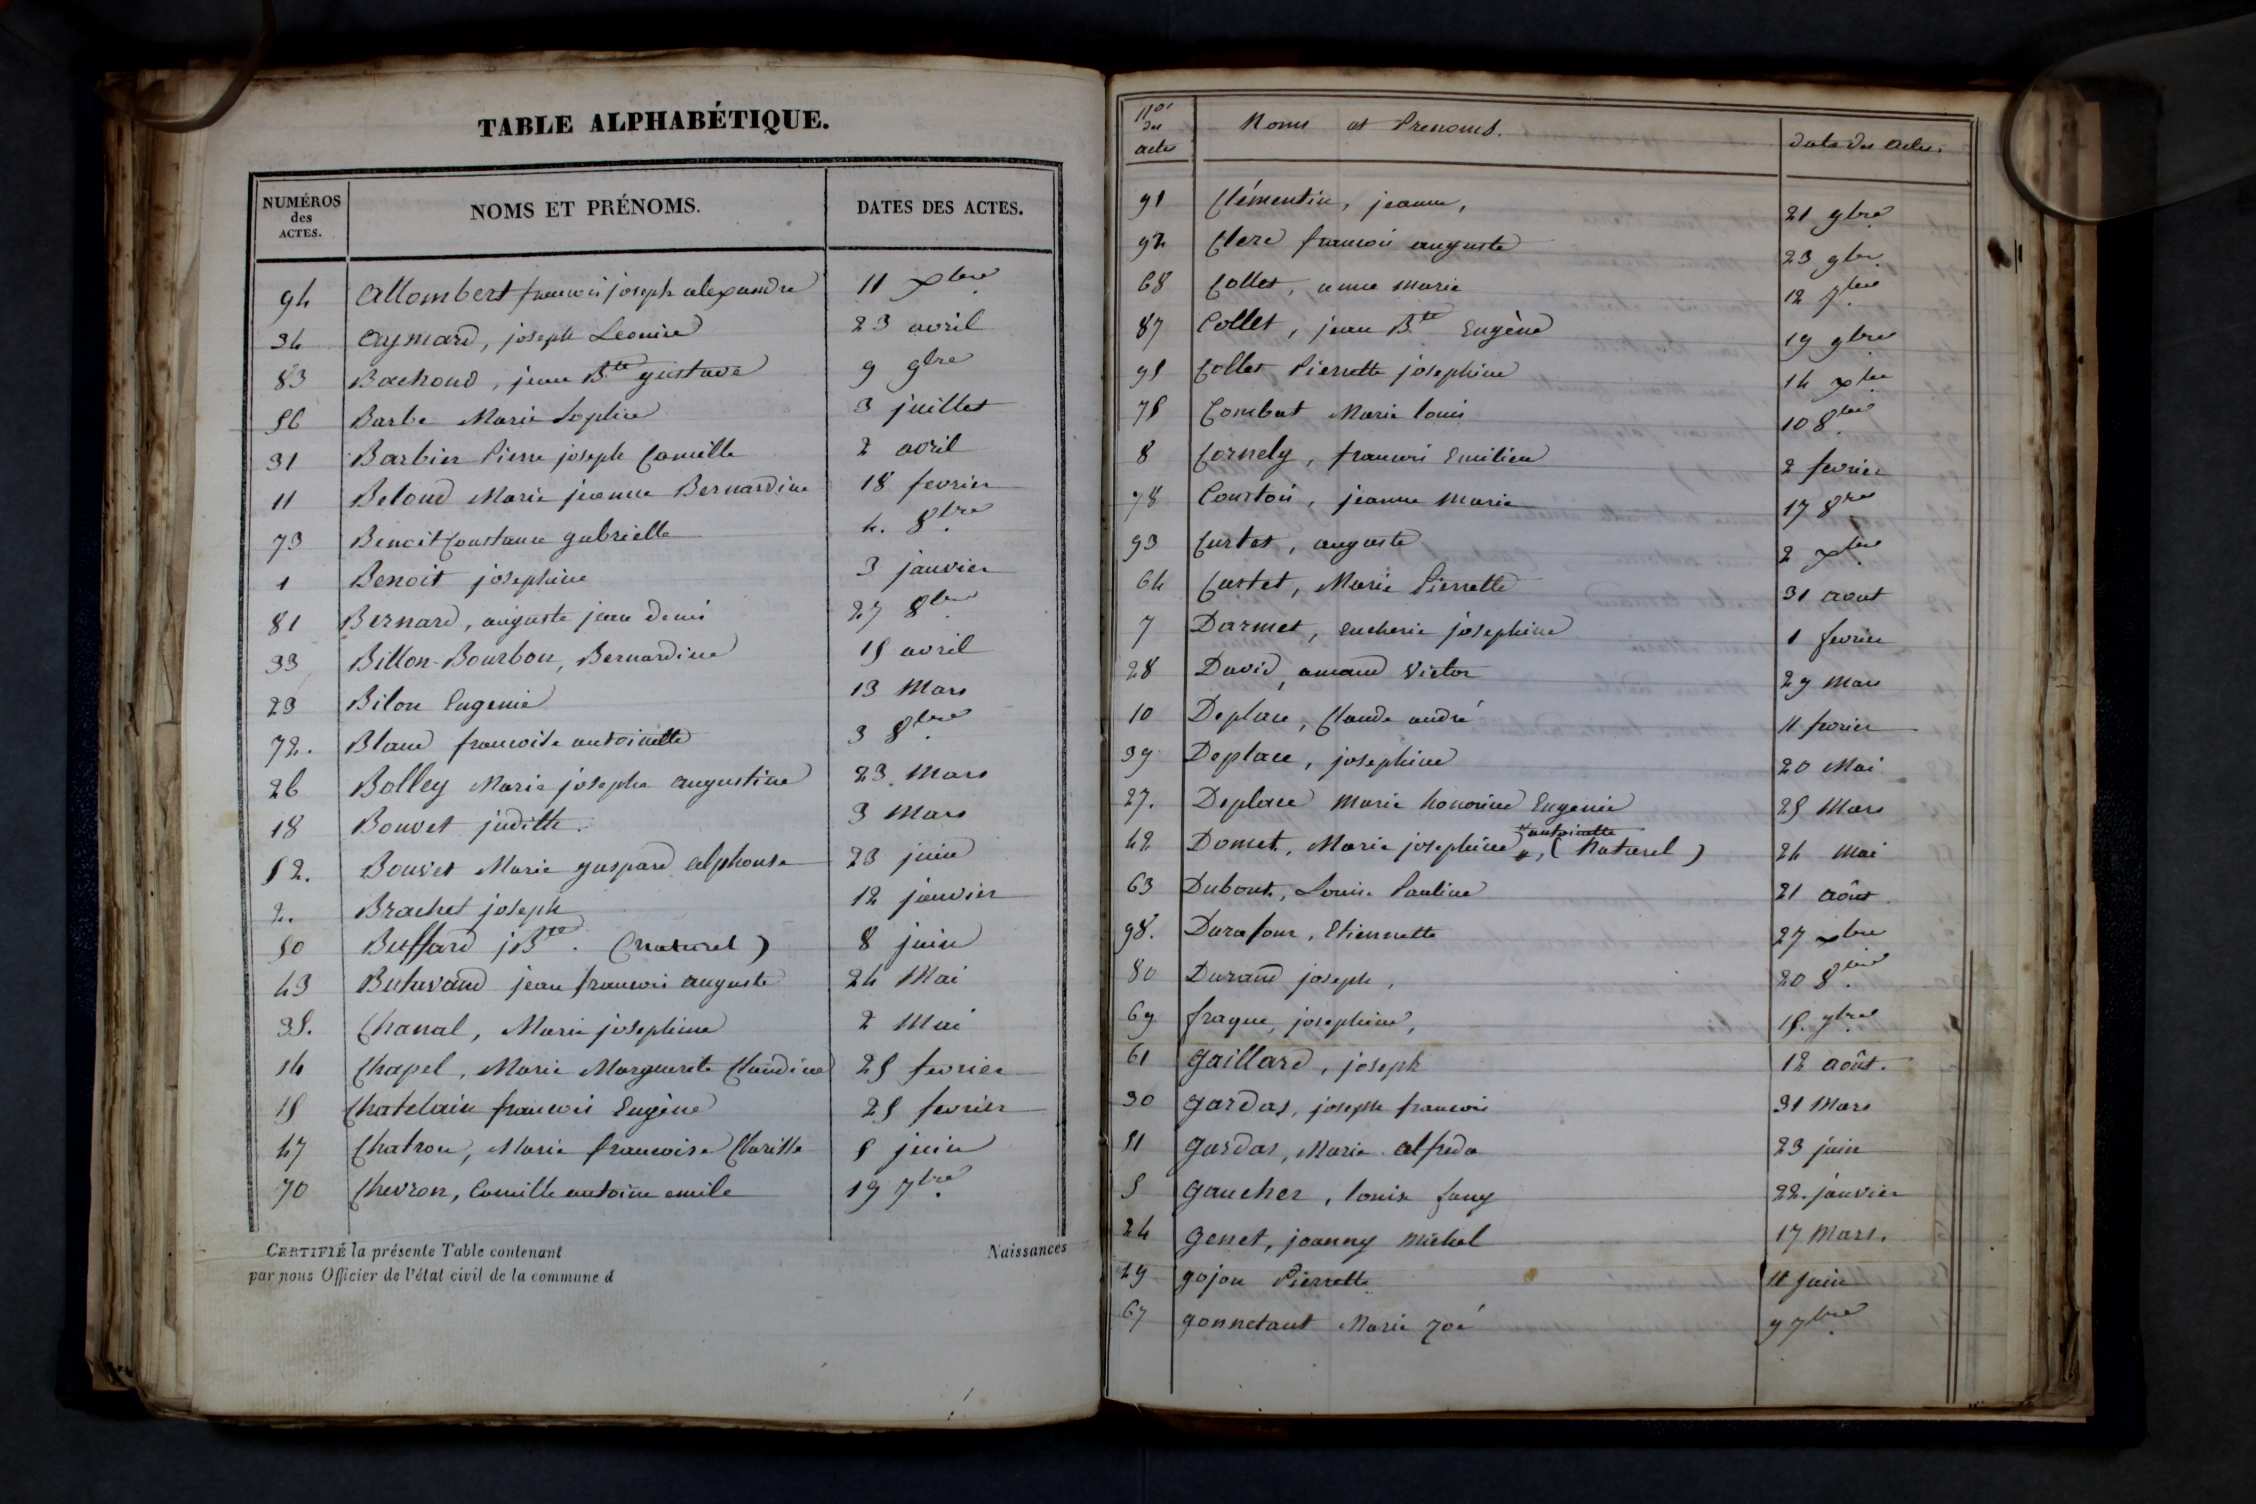 TABLE ALPHABÉTIQUE.
NUMÉROS des ACTES. NOMS ET PRÉNOMS. DATES DES ACTES.
94 Allombert francois joseph alexandre 11 Xbre
34 Aymard, joseph Leonice 23 avril
83 Bachoud, jean Bte gustave 9 9bre
56 Barbe Marie Sophie 3 juillet
31 Barbier Pierre joseph Camille 2 avril
11 Beloud Marie jeanne Bernardine 18 fevrier
73 Benoit Constance gabrielle 4. 8bre
1 Benoit josephine 3 janvier
81 Bernard, auguste jean denis 27 8bre
33 Billon-Bourbon, Bernardine 15 avril
23 Bilon Eugenie 13 Mars
72. Blanc francoise antoinette 3 8bre
26 Bolley Marie josephe augustine 23 Mars
18 Bouvet judith. 3 Mars
52. Bouvet Marie gaspard alphonse 23 juin
2. Brachet joseph 12 janvier
50 Buffard j Bte. (naturel) 8 juin
43 Butavand jean francois auguste 24 Mai
35. Chanal, Marie josephine 2 Mai
14 Chapel, Marie Marguerite Claudine 25 fevrier
15 Chatelain francois Eugène 25 fevrier
47 Chatron, Marie francoise Clarisse 5 juin
70 Chevron, Camille antoine emile 19 7bre
CERTIFIÉ la présente Table contenant Naissances
par nous Officier de l'état civil de la commune d
Nos des actes Noms et Prenoms. date des actes.
91 Clémentin, jeanne, 21 9bre
92 Clerc francois auguste 23 9bre
68 Collet, anne marie 12 7bre
87 Collet, jean Bte Eugène 19 9bre
95 Collet Pierrette josephine 14 Xbre
75 Combet Marie louis 10 8bre
8 Cornely, francois Emilien 2 fevrier
78 Courtois, jeanne marie 17 8bre
93 Curtet, auguste 2 Xbre
64 Curtet, Marie Pierrette 31 aout
7 Darmet, eucherie josephine 1 fevrier
28 David, amand Victor 29 Mars
10 Deplace, Claude andré 11 fevrier
39 Deplace, josephine 20 Mai
27. Deplace marie honorine Eugenie 25 Mars
42 Domet, Marie josephine antoinette, (Naturel) 24 Mai
63 Dubout, Louise Pauline 21 août
98. Durafour, Etiennette 27 Xbre
80 Durand joseph, 20 8bre
69 fraque, josephine, 15. 7bre
61 gaillard, joseph 12 août.
30 gardas, joseph francois 31 Mars
51 gardas, Marie alfreda 23 juin
5 gaucher, louise fany 22. janvier
24 genet, joanny michel 17 Mars.
49 gojon Pierrette 11 juin
67 gonnetant Marie zoé 9 7bre